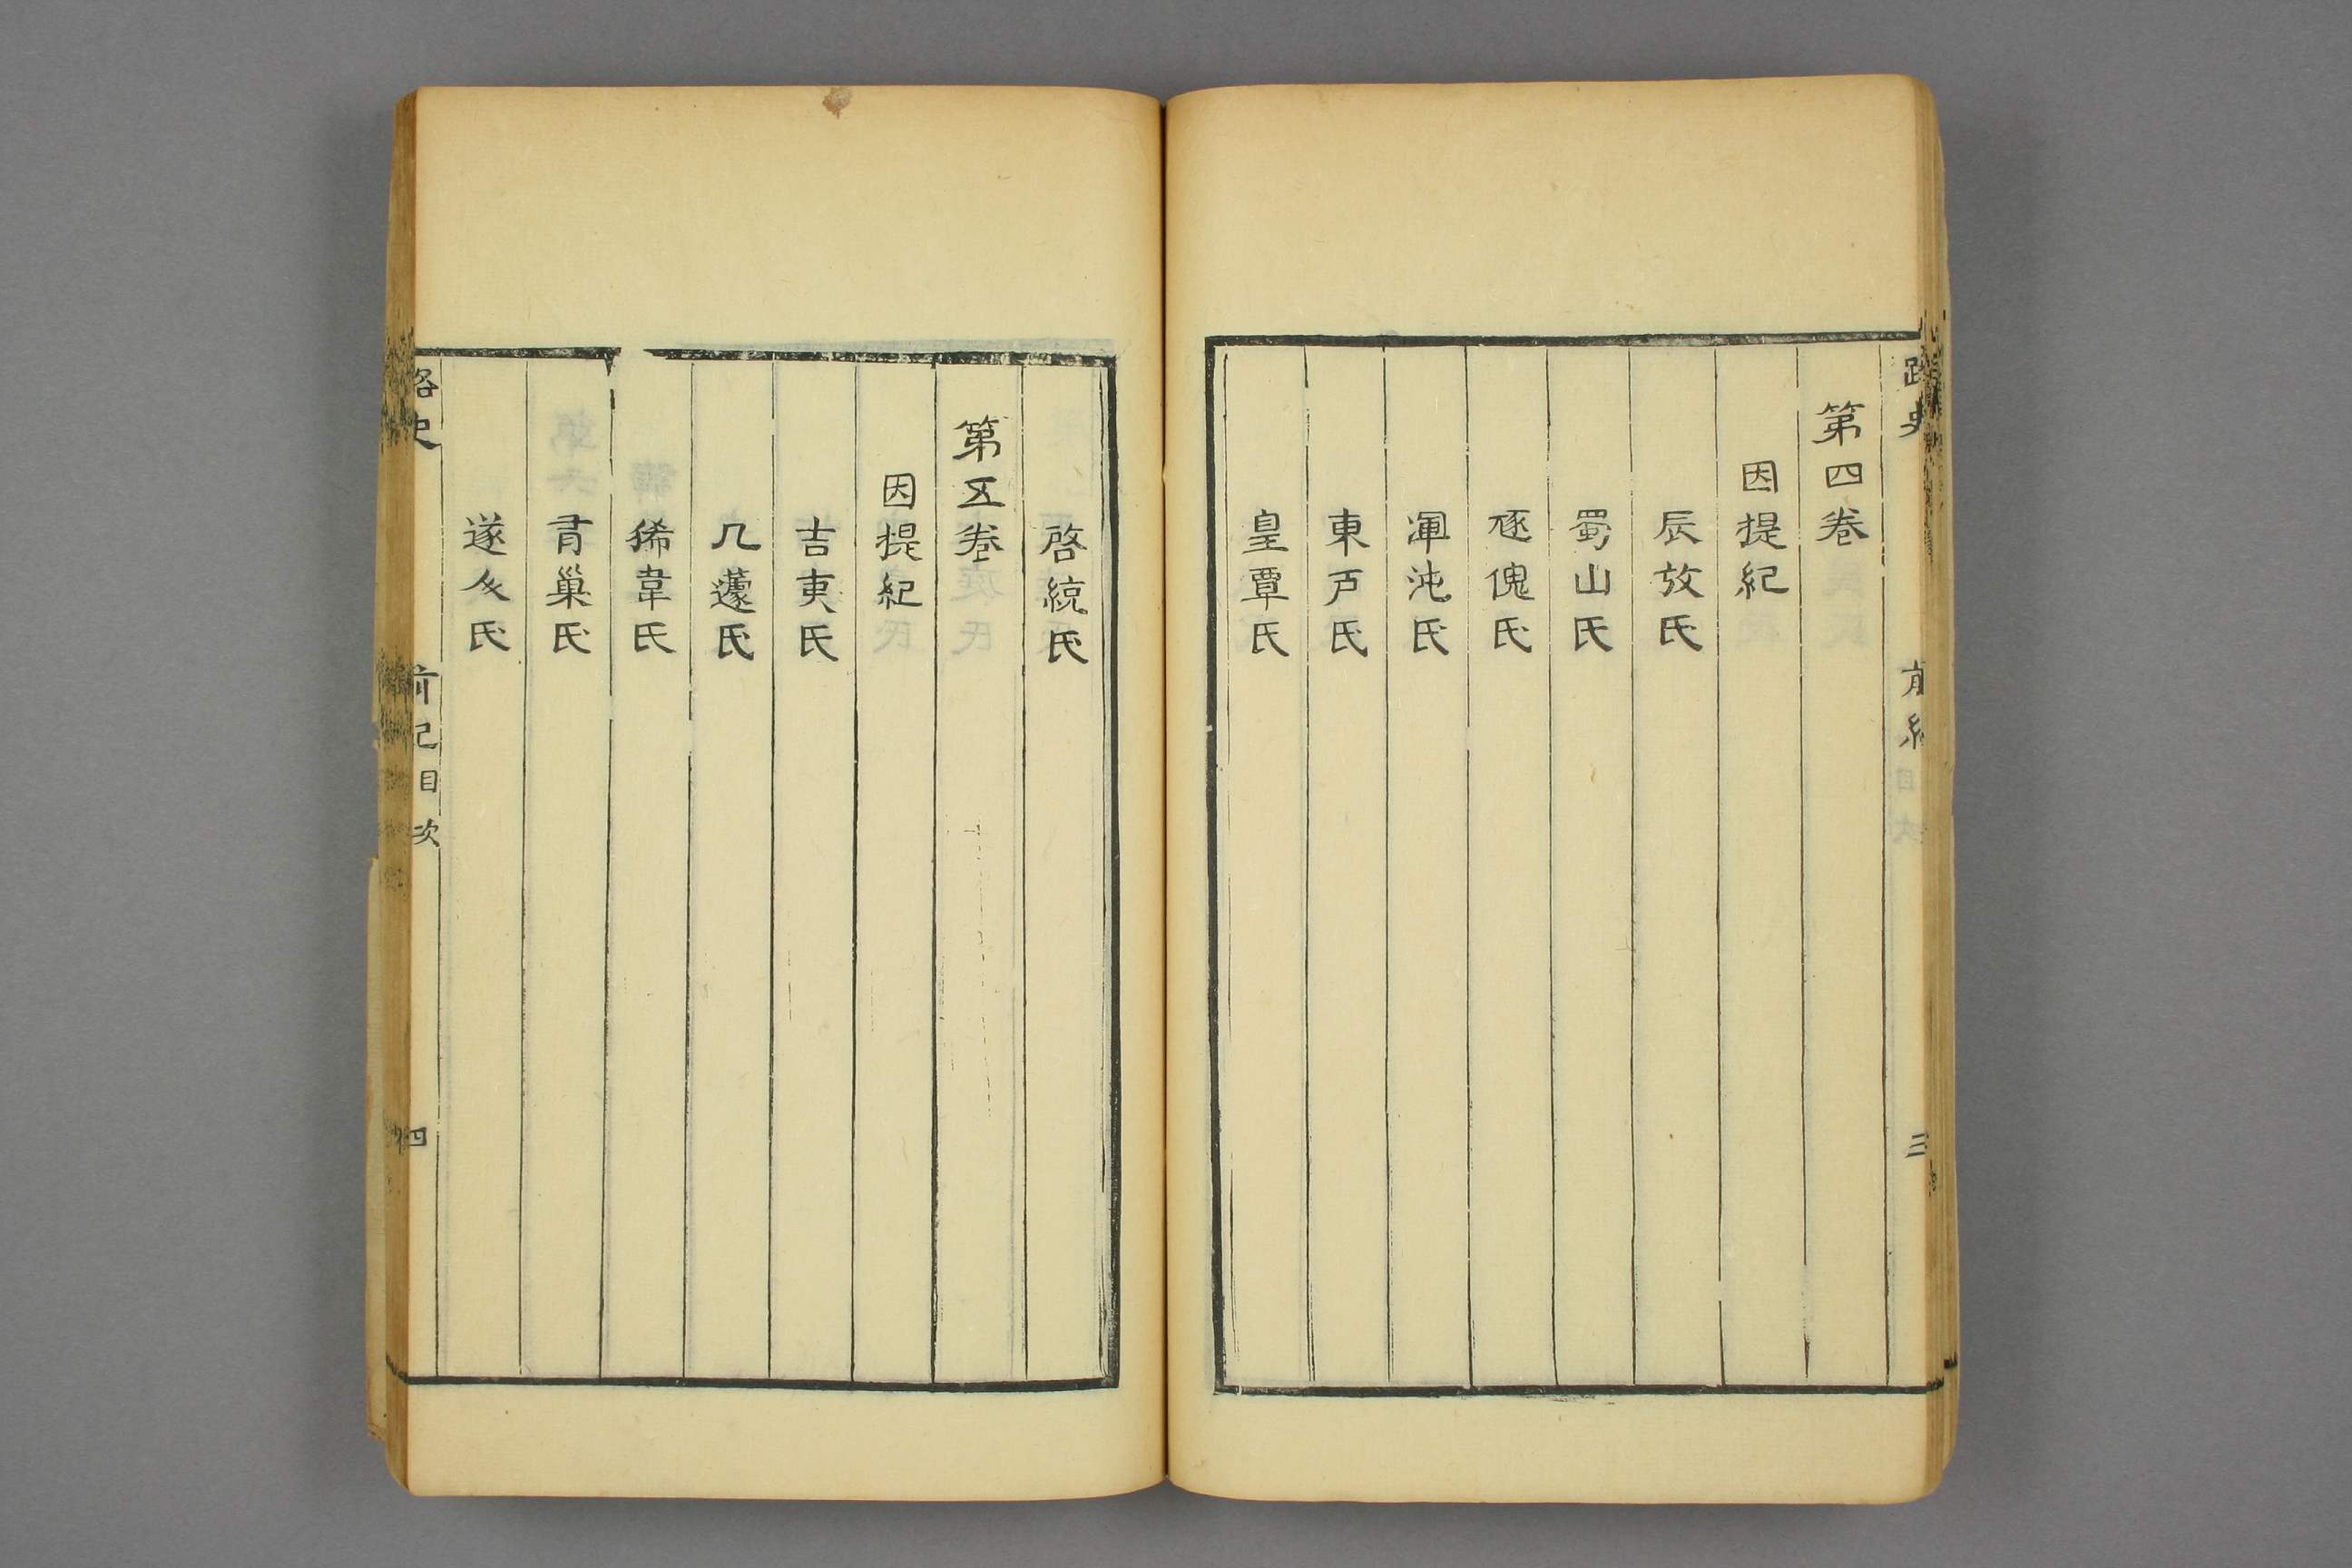 路史
前紀
三
第四卷
因提紀
辰放氏
蜀山氏
豗傀氏
渾沌氏
東戸氏
皇覃氏
啓統氏
第五卷
因提紀
吉夷氏
几蘧氏
狶韋氏
有巢氏
遂人氏
路史
前紀目次
四